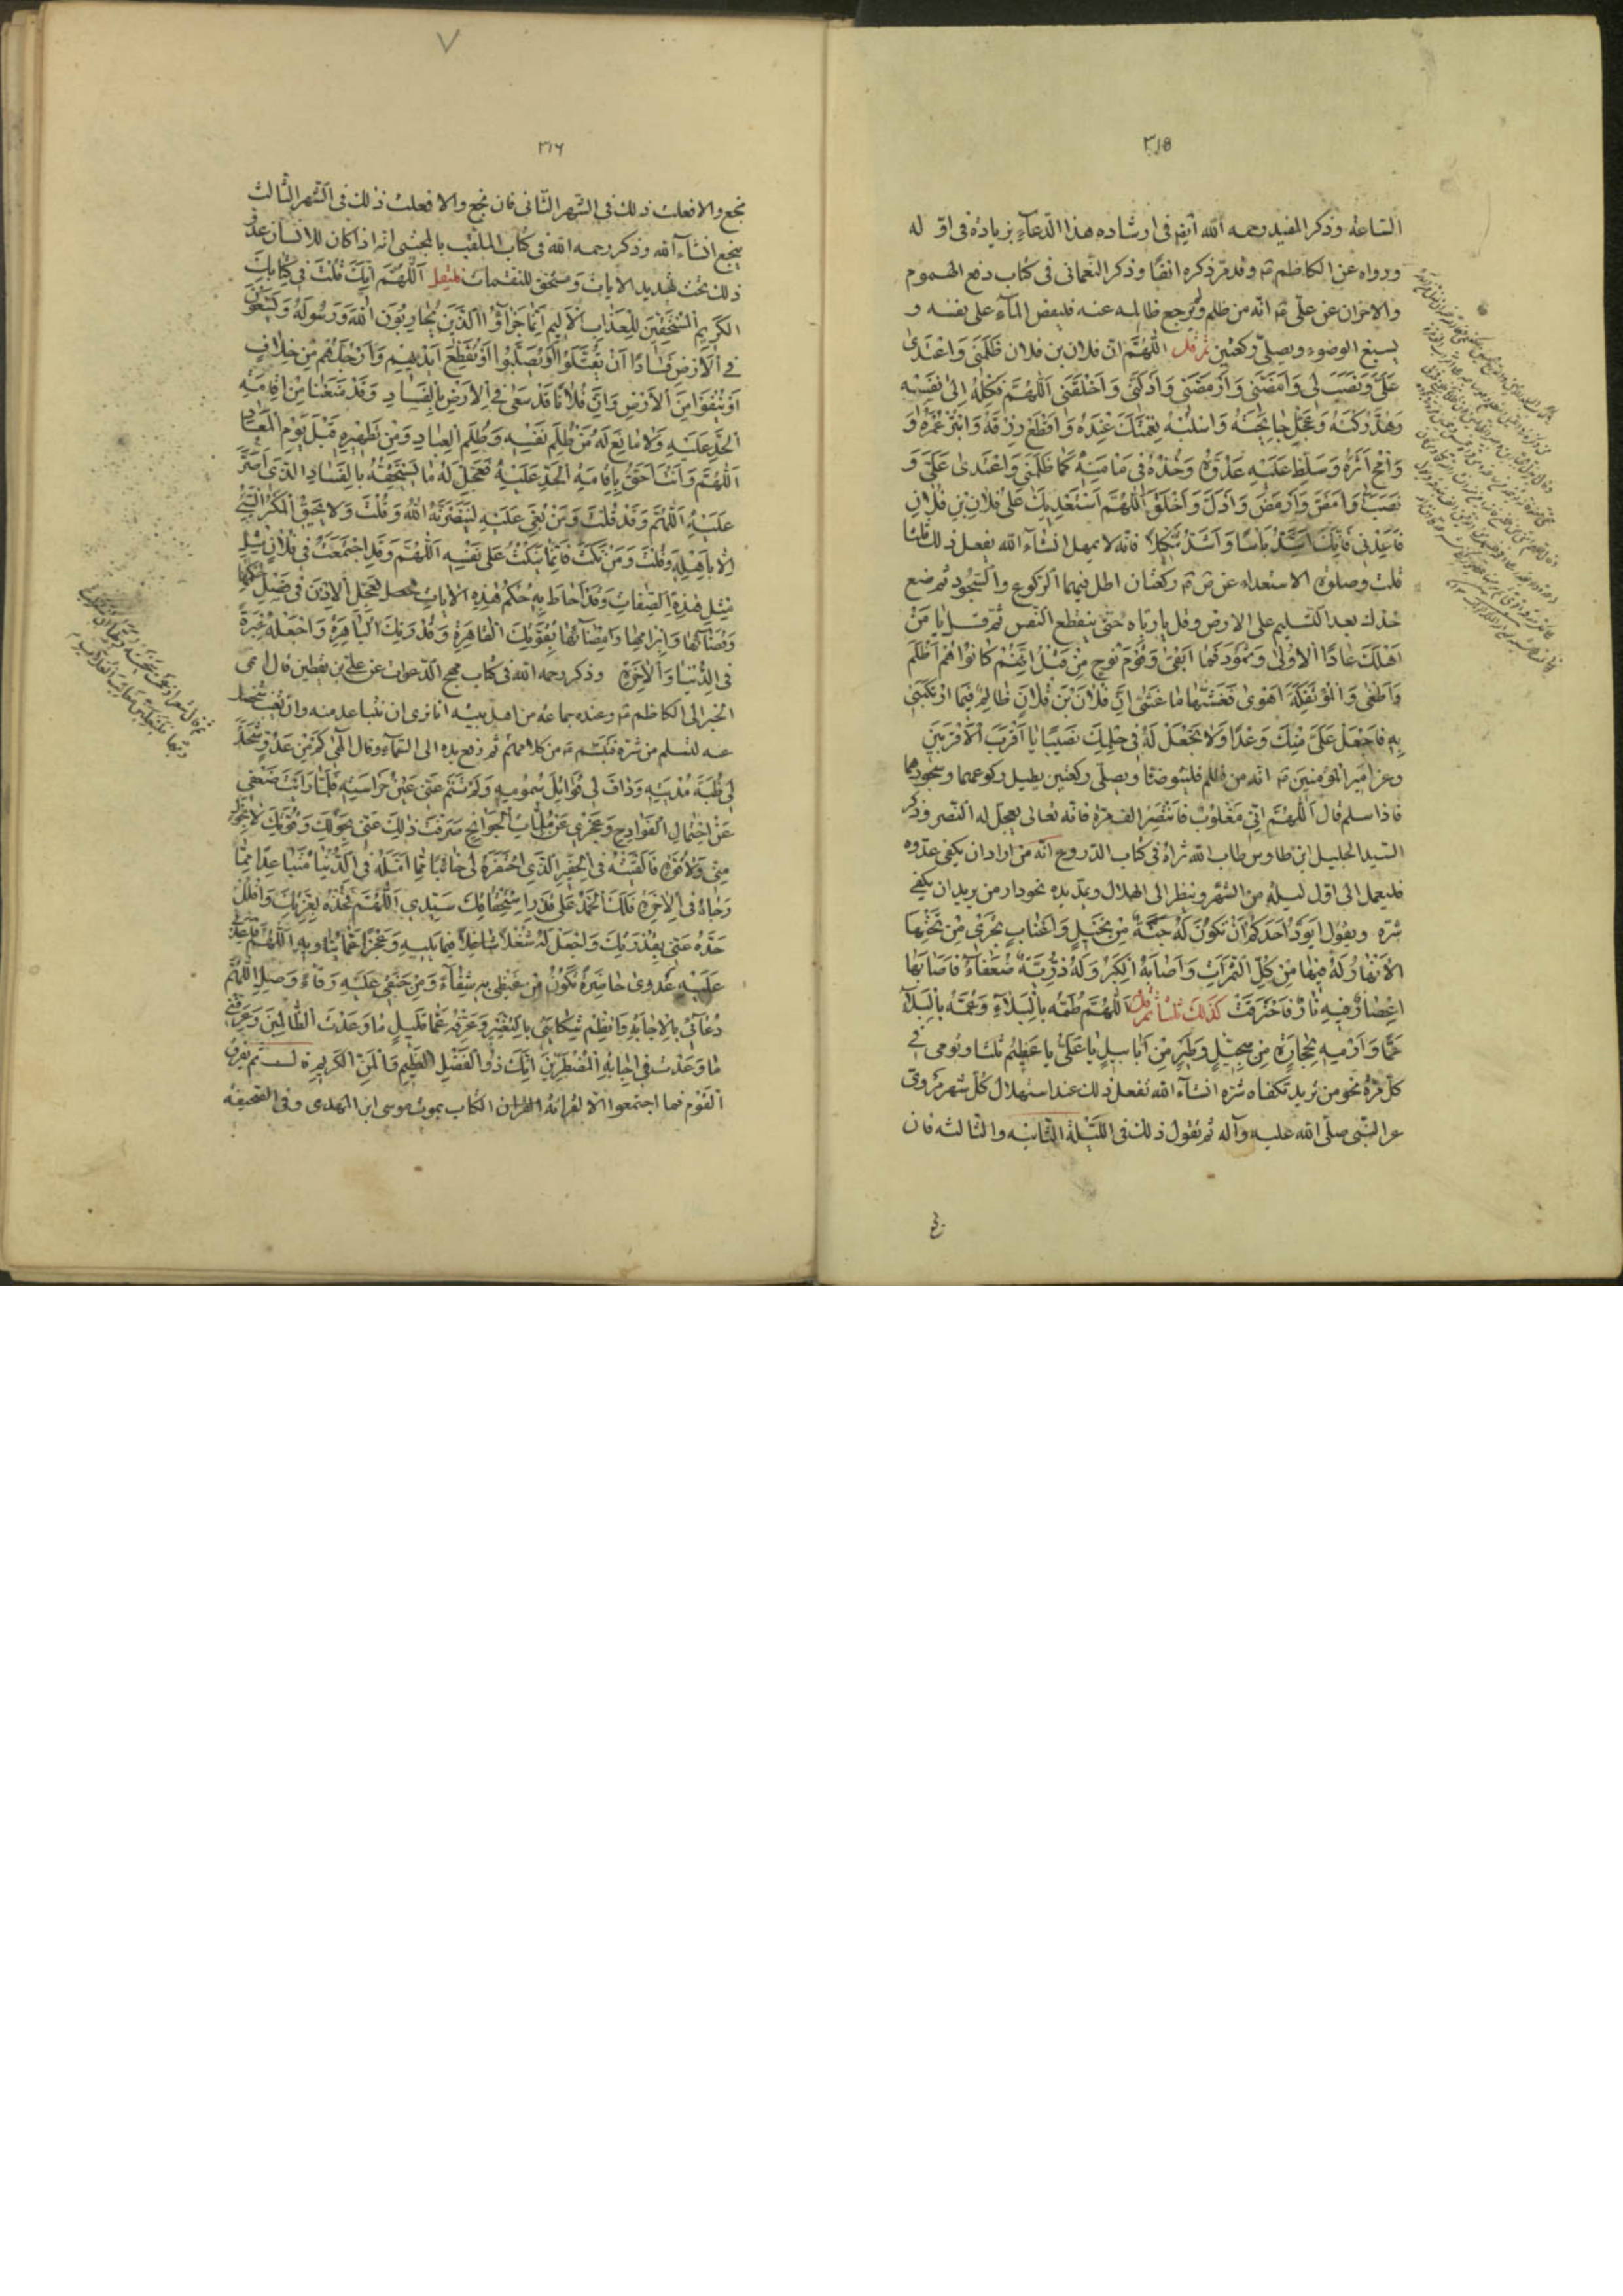 ٣١٥
الساعة وذكر المفيد رحمه الله أيضا في ارشاده هذا الدعاء بزيادة في اوله
ورواه عن الكاظم ع وقد مر ذكره انفا وذكر النعماني في كتاب دفع الهموم
والاحزان عن علي ع انه من ظلم ولم يرجع ظالمه عنه فليفض الماء على نفسه و
يسبغ الوضوء ويصلي ركعتين ثم قل اللهم ان فلان بن فلان ظلمني واعتدى
علي ونصب لي وامضني وارمضني واذلني واخلقني اللهم فكله الى نفسه
وهد ركنه وعجل جائحته واسلبه نعمتك عنده واقطع رزقه وابتر عمره و
وامح اثره وسلط عليه عدوه وخذه في مامنه كما ظلمني واعتدى علي و
نصب لي وامض وارمض واذل واخلق اللهم استعديك على فلان بن فلان
فاعدني فانك اشد باسا واشد تنكيلا فانه لا يمهل انشاء الله يفعل ذلك ثلثا
قلت وصلوة الاستعداء عن ص ع ركعتان اطل فيهما الركوع والسجود ثم ضع
خدك بعد التسليم على الارض وقل يا رباه حتى ينقطع النفس ثم قل يا من
اهلك عادا الاولى وثمود فما ابقى وقوم نوح من قبل انهم كانوا هم اظلم
واطغى والمؤتفكة اهوى فغشيها ما غشى ان فلان بن فلان ظالم فيما ارتكبني
به فاجعل علي منك وعدا ولا تجعل له في حلمك نصيبا يا اقرب الاقربين
وعن امير المؤمنين ع انه من ظلم فليتوضأ ويصلي ركعتين يطيل ركوعهما وسجودهما
فاذا سلم قال اللهم اني مغلوب فانتصر الف مرة فانه تعالى يعجل له النصر وذكر
السيد الجليل ابن طاوس طاب الله ثراه في كتاب الدروع انه من اراد ان يكفى عدوه
فليعمل الى اول ليلة من الشهر وينظر الى الهلال ويمد يده نحو دار من يريد ان يكفى
شره ويقول ايود احدكم ان تكون له جنة من نخيل واعناب تجري من تحتها
الانهار له فيها من كل الثمرات واصابه الكبر وله ذرية ضعفاء فاصابها
اعصار فيه نار فاحترقت كذلك ثلثا ثم قل اللهم طمه بالبلاء وعمه بالبلاء
عما وارميه بحجارة من سجيل وطير من ابابيل يا علي يا عظيم ثلثا ويومي في
كل مرة نحو من يريد تكفاه شره انشاء الله تفعل ذلك عند استهلال كل شهر مروي
عن النبي صلى الله عليه وآله ثم يقول ذلك في الليلة الثانية والثالثة فان
٣١٦
نجع والا فعلت ذلك في الشهر الثاني فان نجع والا فعلت ذلك في الشهر الثالث
ينجع انشاء الله وذكر رحمه الله في كتاب الملقب بالمجتنى انه اذا كان للانسان عدو
ذلك تحت تهديد الايات ومستحق للنقمات فليقل اللهم انك قلت في كتابك
الكريم المستحقين للعذاب الاليم انما جزاؤا الذين يحاربون الله ورسوله ويسعون
في الارض فسادا ان يقتلوا او يصلبوا او تقطع ايديهم وارجلهم من خلاف
او ينفوا من الارض وان فلانا قد سعى في الارض بالفساد وقد منعنا من اقامة
الحد عليه ولا مانع له من ظلم نفسه وظلم العباد ومن تطهره قبل يوم المعاد
اللهم وانت احق باقامة الحد عليه فعجل له ما يستحقه بالفساد الذي اصر
عليه اللهم وقد قلت ومن بغي عليه لينصرنه الله وقلت ولا يحيق المكر السيئ
الا باهله وقلت ومن نكث فانما ينكث على نفسه اللهم وقد اجتمعت في فلان بن فلان
مثل هذه الصفات وقد احاط به حكم هذه الايات فعجل الاذن في فصل حكمها
وقضائها وابرامها وامضائها بقوتك القاهرة وقدرتك الباهرة واجعله عبرة
في الدنيا والاخرة وذكر رحمه الله في كتاب مهج الدعوات عن علي بن يقطين قال نمى
الخبر الى الكاظم ع وعنده جماعة من اهل بيته انا نرى ان نتباعد منه وان تغيب شخصك
عنه لتسلم من شره فتبسم ع من كلامهم ثم رفع يده الى السماء وقال الهي كم من عدو شحذ
لي ظبة مديته وداف لي قواتل سمومه ولم تنم عني عين حراسته فلما رايت ضعفي
عن احتمال الفوادح وعجزي عن ملمات الجوائح صرفت ذلك عني بحولك وقوتك لا بحول
مني ولا قوة فالقيته في الحفير الذي احتفره لي خائبا مما امله في الدنيا متباعدا مما
رجاه في الاخرة فلك الحمد على قدر استحقاقك سيدي اللهم فخذه بعزتك وافلل
حده عني بقدرتك واجعل له شغلا شاغلا فيما يليه وعجزا عما يناويه اللهم واعدني
عليه عدوى حاضرة تكون من غيظي به شفاء ومن حنقي عليه وفاء وصل اللهم
دعائي بالاجابة وانظم شكايتي بالتغيير وعرفه عما قليل ما وعدت الظالمين وعرفني
ما وعدت في اجابة المضطرين انك ذو الفضل العظيم والمن الكريم قال ثم تفرق
القوم فما اجتمعوا الا لقرائة الكتاب بموت موسى ابن المهدي وفي الصحيفة